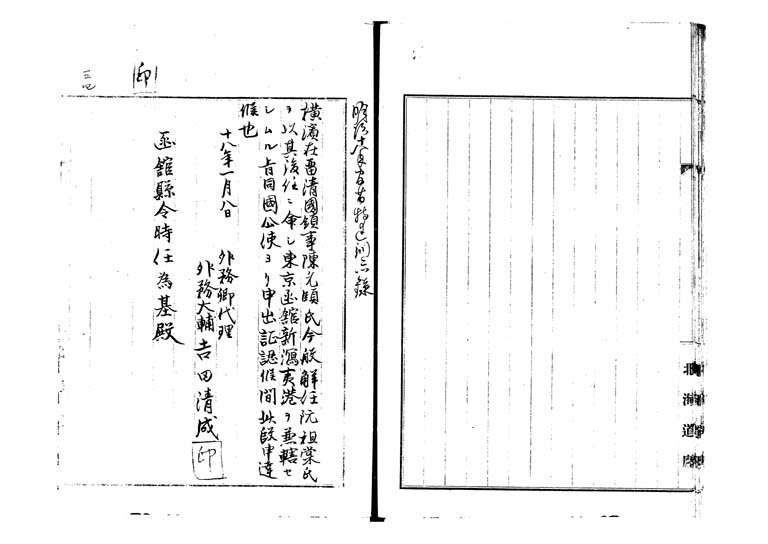 横濱在留清國領事陳允頤氏今般解任阮祖棠氏
ヲ以其後任ニ命シ東京函舘新瀉夷港ヲ兼轄セ
シムル旨同國公使ヨリ申出証認候間此段申達
候也
十八年一月八日
外務卿代理
外務大輔吉田清成 印
函舘縣令時任為基殿
印
三四
北海道廳